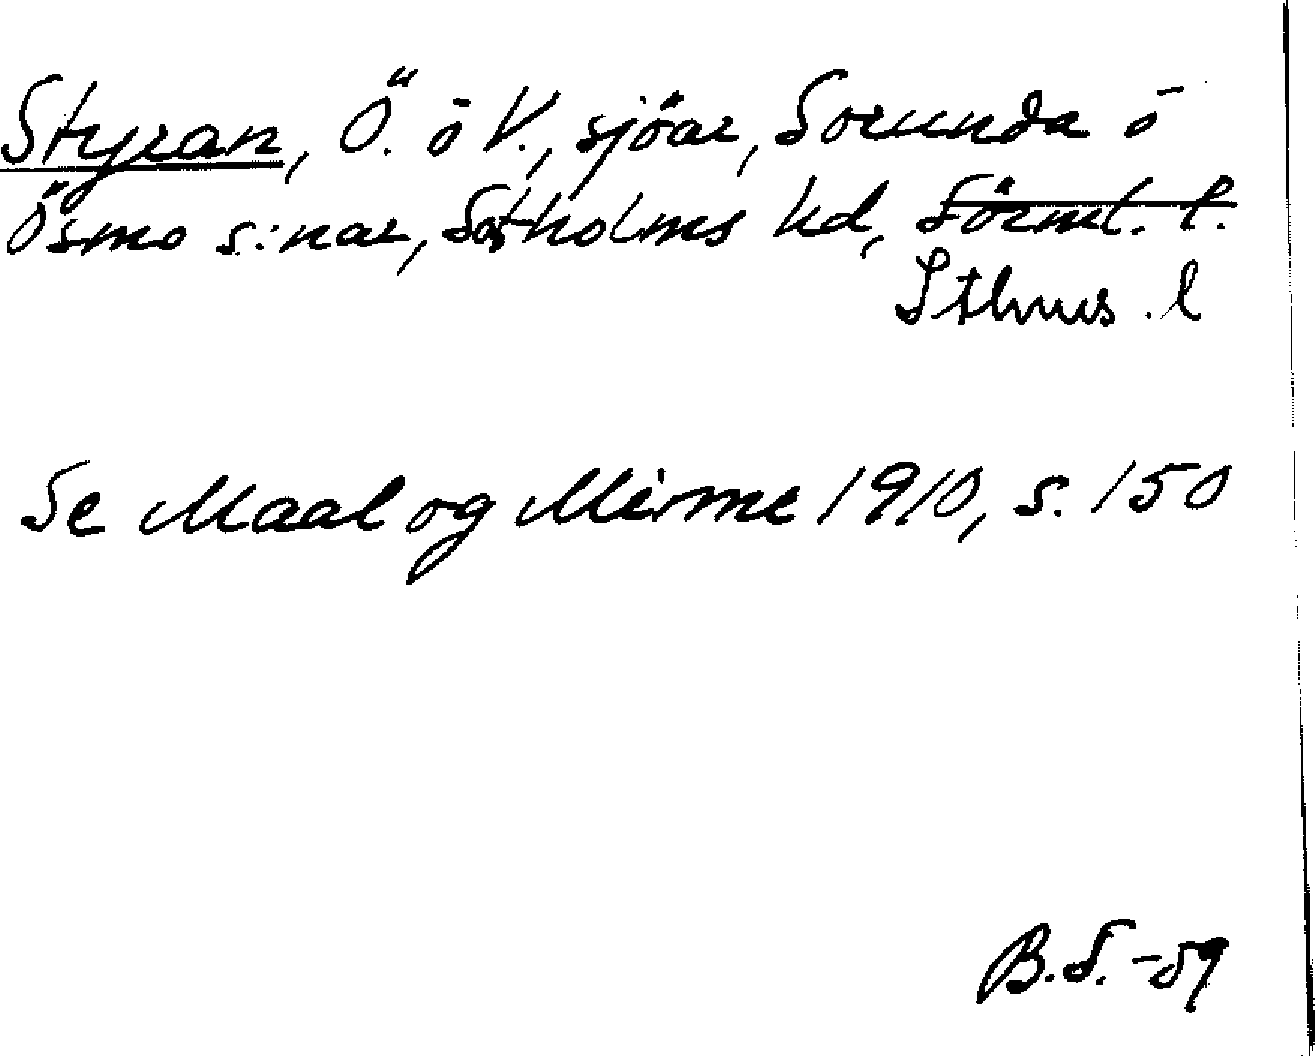 Styran, Ö. o V., sjöar, Sorunda o
Ösmo s:nar, Sotholms hd, Sörml. l.
Sthms. l
Se Maal og Minne 1910, s. 150
B.S. -59